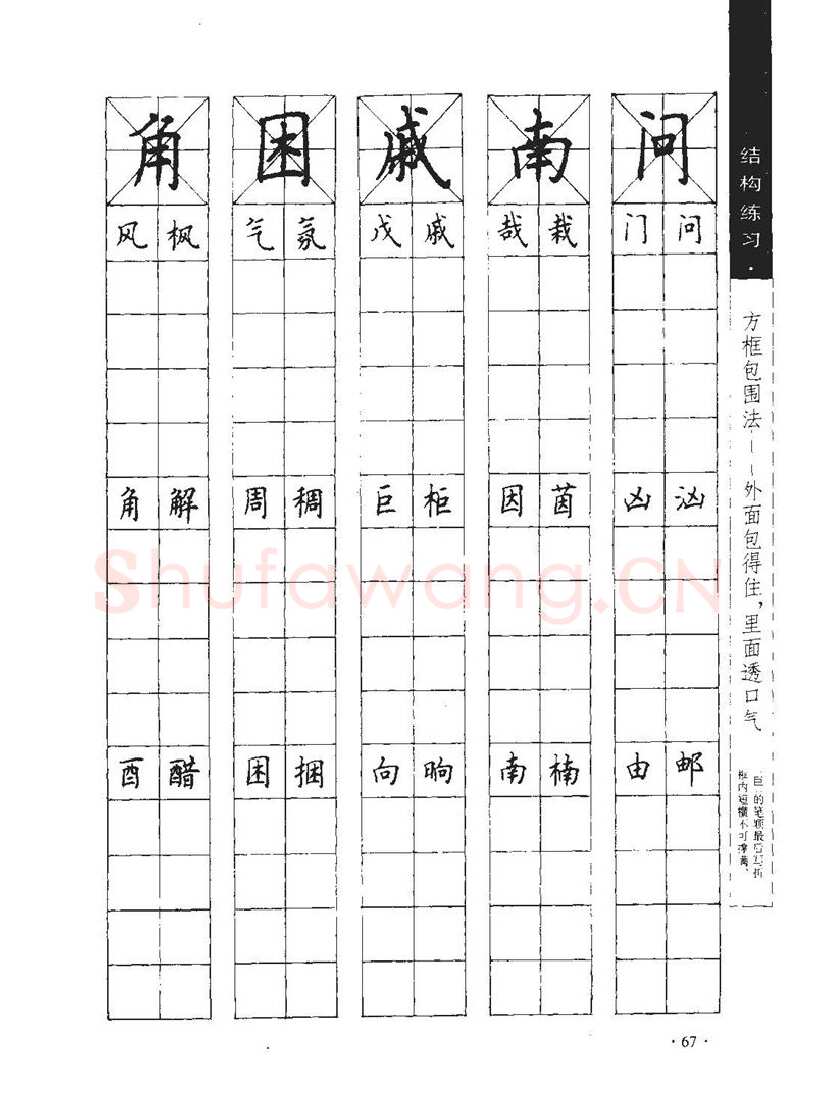 角 困 戚 南 问
风 枫 气 氛 戊 戚 哉 栽 门 问
角 解 周 稠 巨 柜 因 茵 凶 汹
酉 醋 困 捆 向 晌 南 楠 由 邮
结构练习·
方框包围法——外面包得住，里面透口气
"巨"的笔顺最后写折
框内短横不可撑满。
Shufawang.CN
·67·